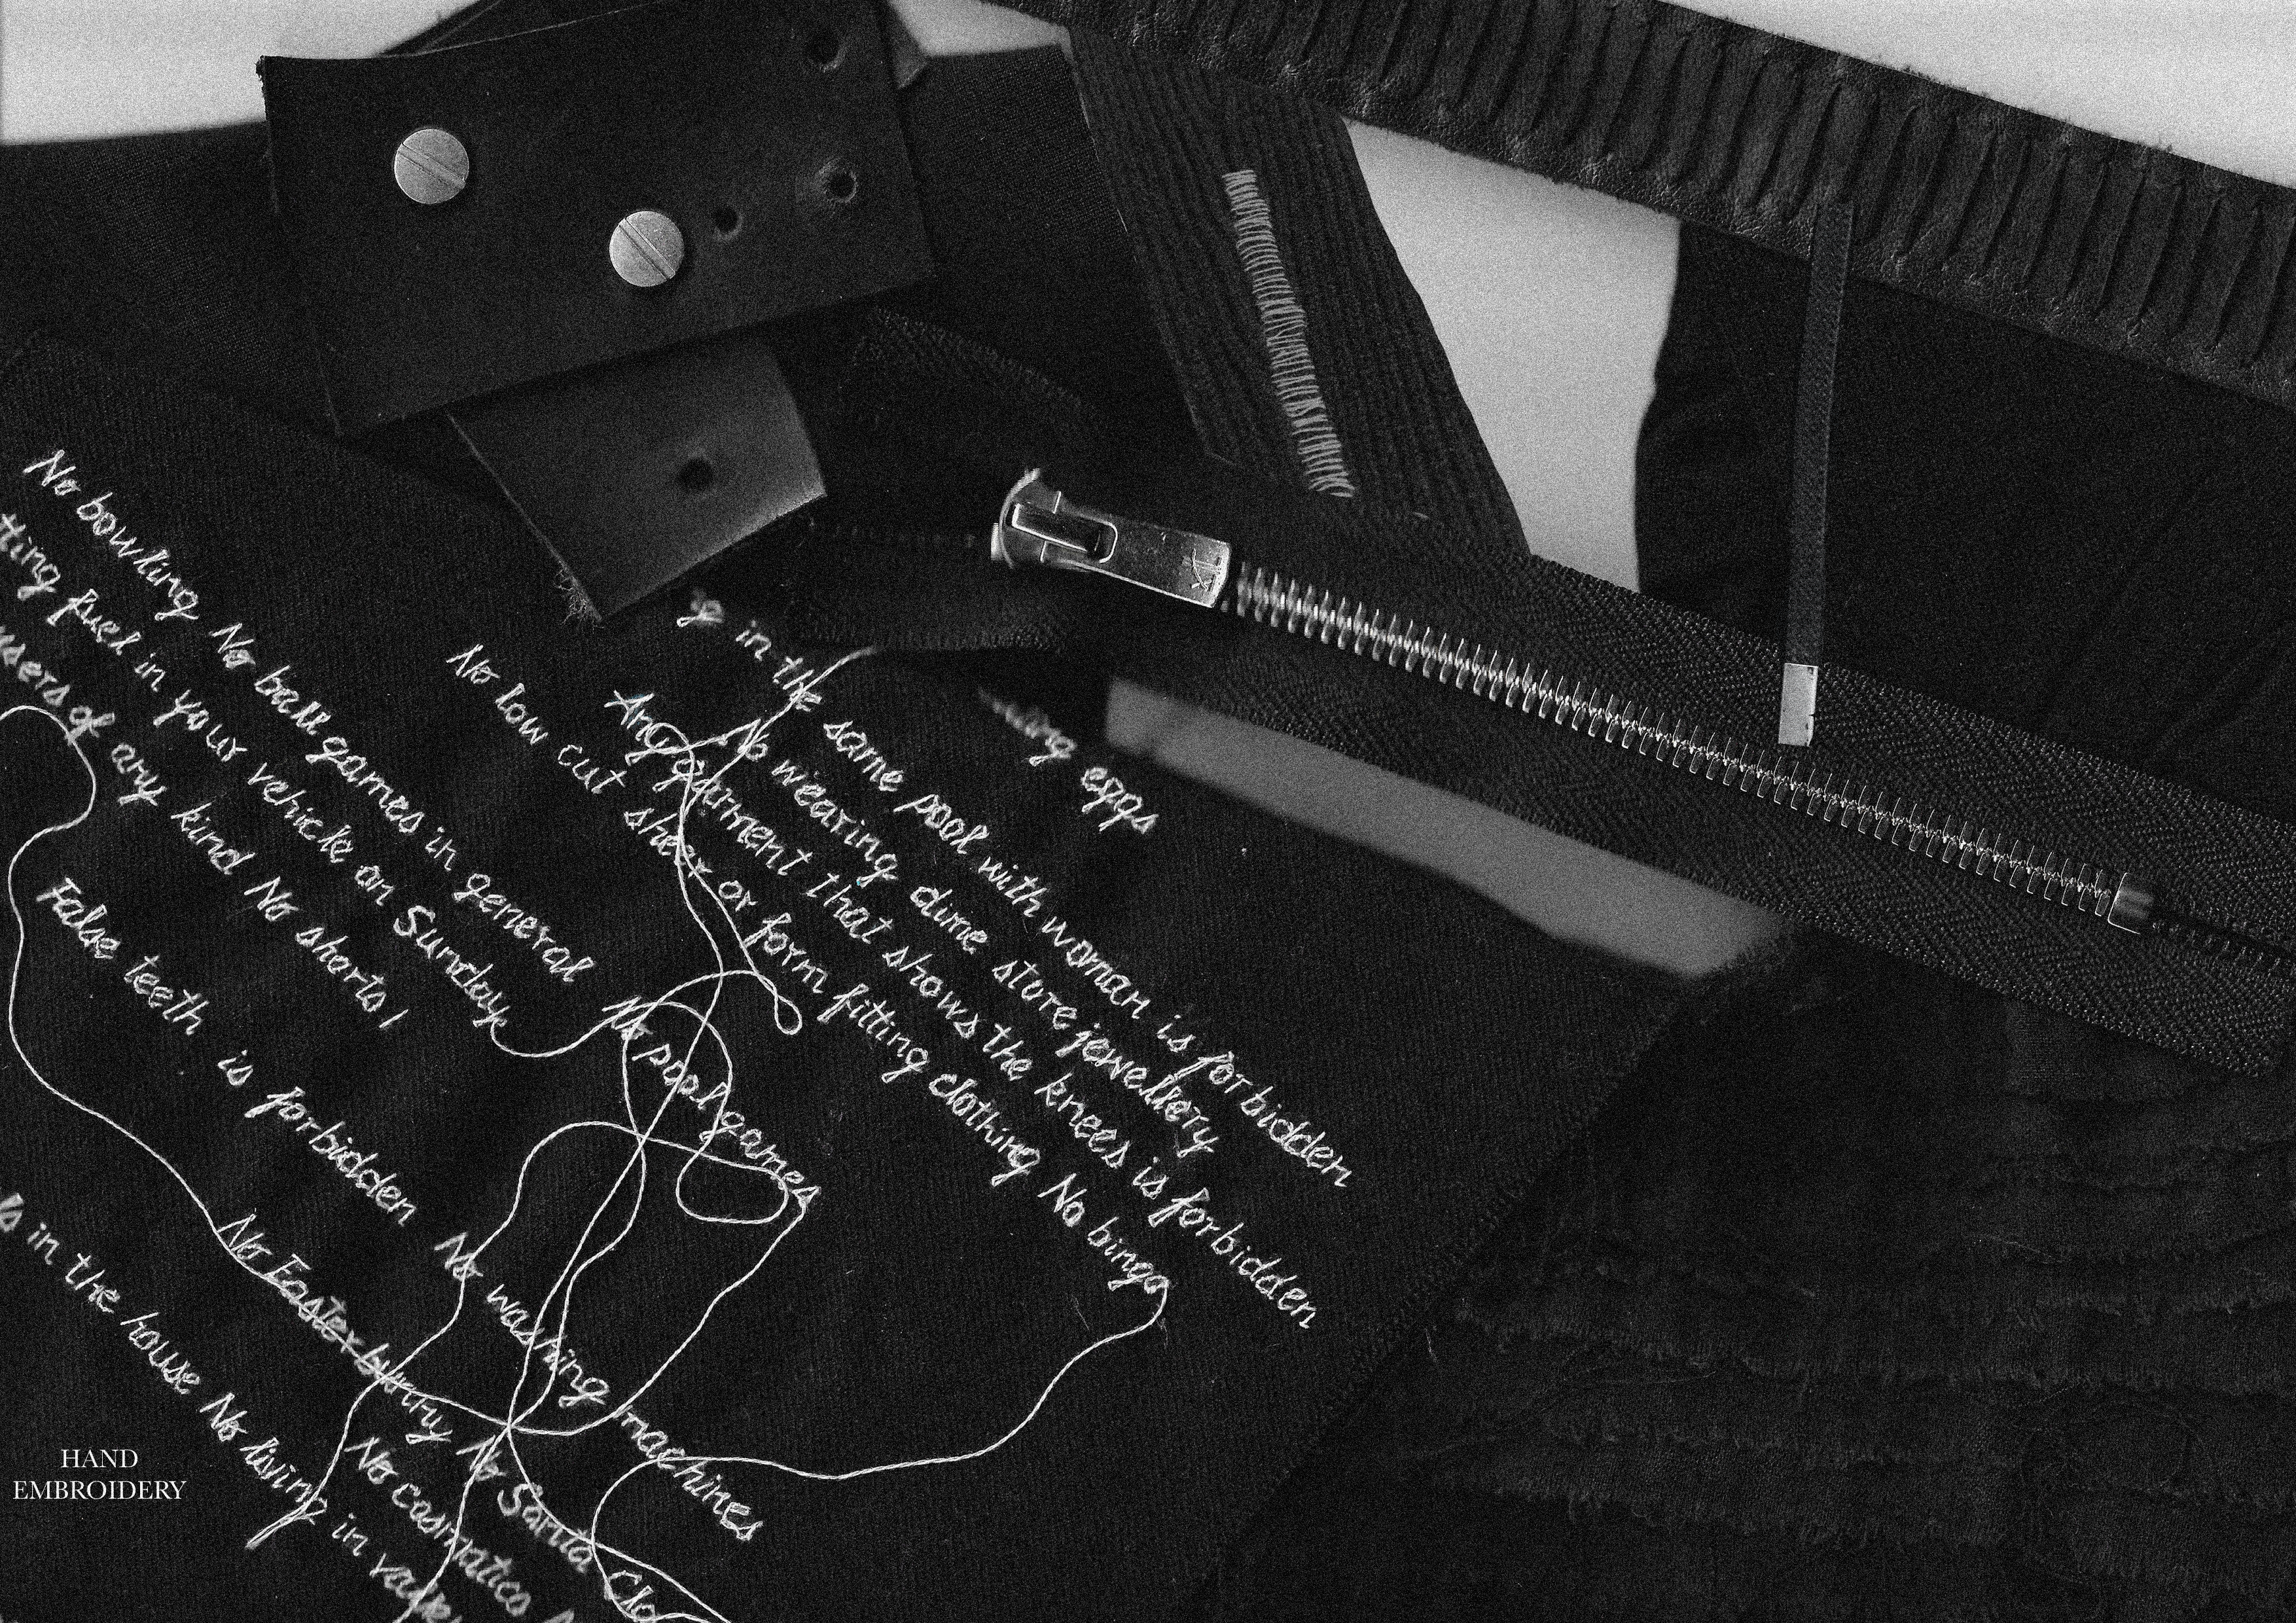 No bowling No ball games in general
tting fuel in your vehicle on Sunday
users of any kind No shorts!
False teeth is forbidden
No pool games
No low cut sheer or form fitting clothing No bingo
Any garment that shows the knees is forbidden
No wearing dime store jewellery
in the same pool with woman is forbidden
eggs
No washing machines
No Easter bunny No Santa Cla
No cosmatics
in the house No living in
HAND
EMBROIDERY